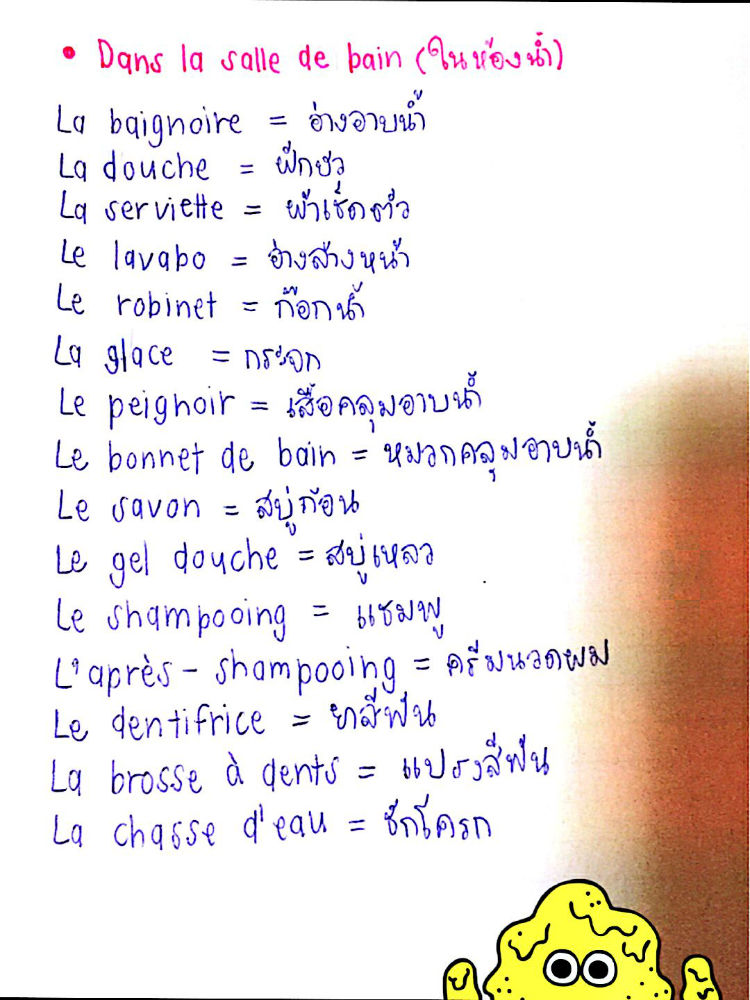 • Dans la salle de bain (ในห้องน้ำ)
La baignoire = อ่างอาบน้ำ
La douche = ฝักบัว
La serviette = ผ้าเช็ดตัว
Le lavabo = อ่างล้างหน้า
Le robinet = ก๊อกน้ำ
La glace = กระจก
Le peignoir = เสื้อคลุมอาบน้ำ
Le bonnet de bain = หมวกคลุมอาบน้ำ
Le savon = สบู่ก้อน
Le gel douche = สบู่เหลว
Le shampooing = แชมพู
L'après-shampooing = ครีมนวดผม
Le dentifrice = ยาสีฟัน
La brosse à dents = แปรงสีฟัน
La chasse d'eau = ชักโครก